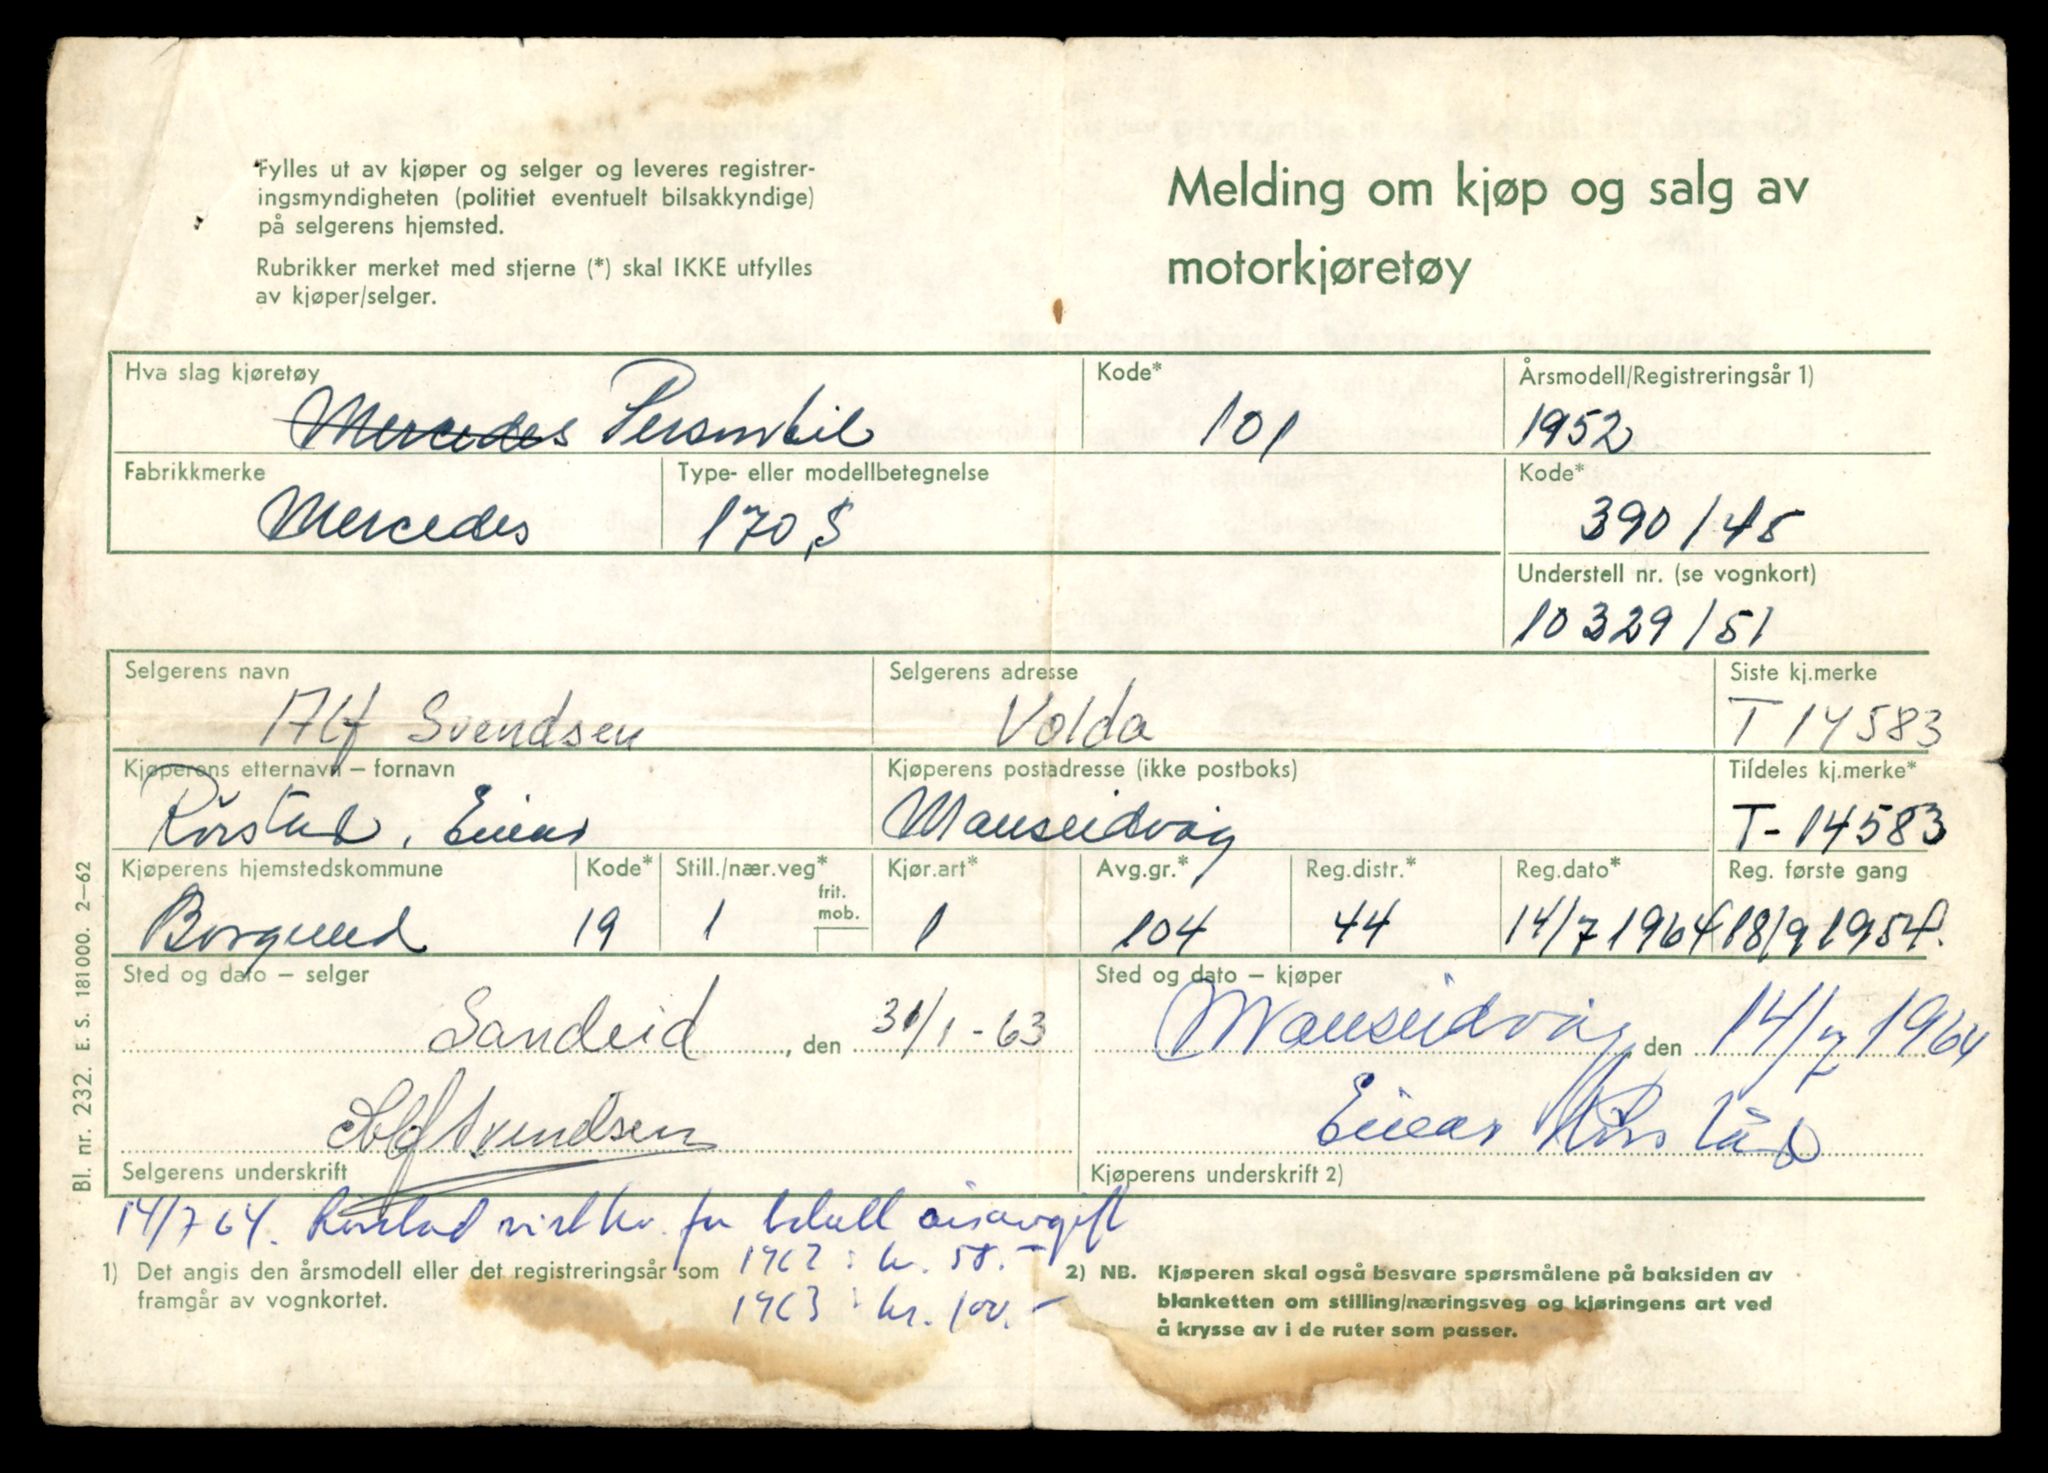 Fylles ut av kjøper og selger og leveres registrer-
ingsmyndigheten (politiet eventuelt bilsakkyndige)
på selgerens hjemsted.
Rubrikker merket med stjerne (*) skal IKKE utfylles
av kjøper/selger.
Melding om kjøp og salg av
motorkjøretøy
Hva slag kjøretøy
Mercedes Personbil
Kode*
101
Årsmodell/Registreringsår 1)
1952
Fabrikkmerke
Mercedes
Type- eller modellbetegnelse
170 S
Kode*
390/45
Understell nr. (se vognkort)
10329/51
Selgerens navn
Alf Svendsen
Selgerens adresse
Volda
Siste kj.merke
T 14583
Kjøperens etternavn – fornavn
Rørstad, Einar
Kjøperens postadresse (ikke postboks)
Mauseidvåg
Tildeles kj.merke*
T-14583
Kjøperens hjemstedskommune
Borgund
Kode*
19
Still./nær.veg*
1
frit.
mob.
Kjør.art*
1
Avg.gr.*
104
Reg.distr.*
44
Reg.dato*
14/7 1964
Reg. første gang
18/9 1954.
Sted og dato – selger
Sandeid, den 31/1-63
Sted og dato – kjøper
Mauseidvåg, den 14/7 1964
Alf Svendsen
Selgerens underskrift
Einar Rørstad
Kjøperens underskrift 2)
14/7 64. Rørstad vist kv. for betalt årsavgift
1962: kr. 50.-
1963: kr. 100.-
1) Det angis den årsmodell eller det registreringsår som
framgår av vognkortet.
2) NB. Kjøperen skal også besvare spørsmålene på baksiden av
blanketten om stilling/næringsveg og kjøringens art ved
å krysse av i de ruter som passer.
Bl. nr. 232. E. S. 181000. 2–62